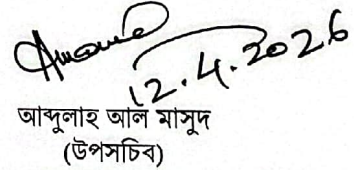 12.4.2026
আব্দুলাহ আল মাসুদ
(উপসচিব)